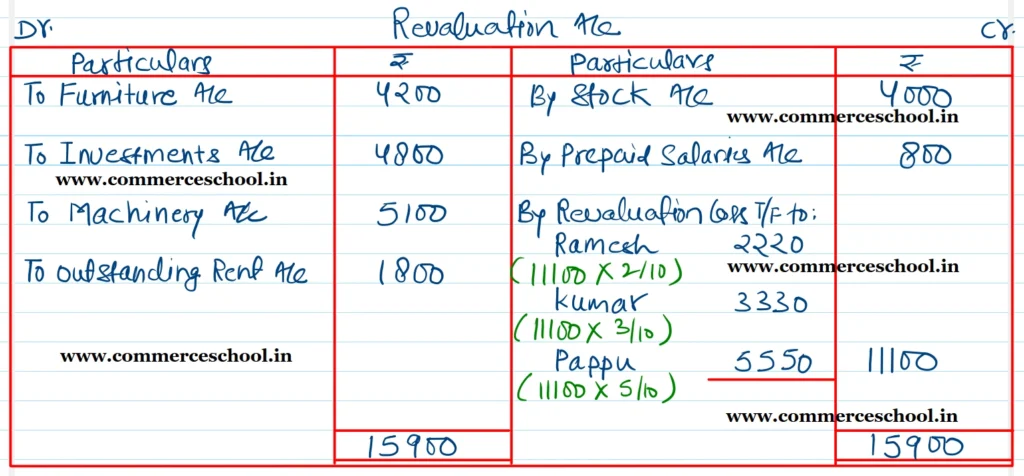 Dr. Revaluation A/c Cr.
Particulars ₹ Particulars ₹
To Furniture A/c 4200 By Stock A/c 4000
www.commerceschool.in
To Investments A/c 4800 By Prepaid Salaries A/c 800
www.commerceschool.in
To Machinery A/c 5100 By Revaluation Loss T/F to:
Ramesh 2220
To Outstanding Rent A/c 1800 (11100 X 2/10) www.commerceschool.in
Kumar 3330
(11100 X 3/10)
www.commerceschool.in Pappu 5550 11100
(11100 X 5/10)
www.commerceschool.in
15900 15900